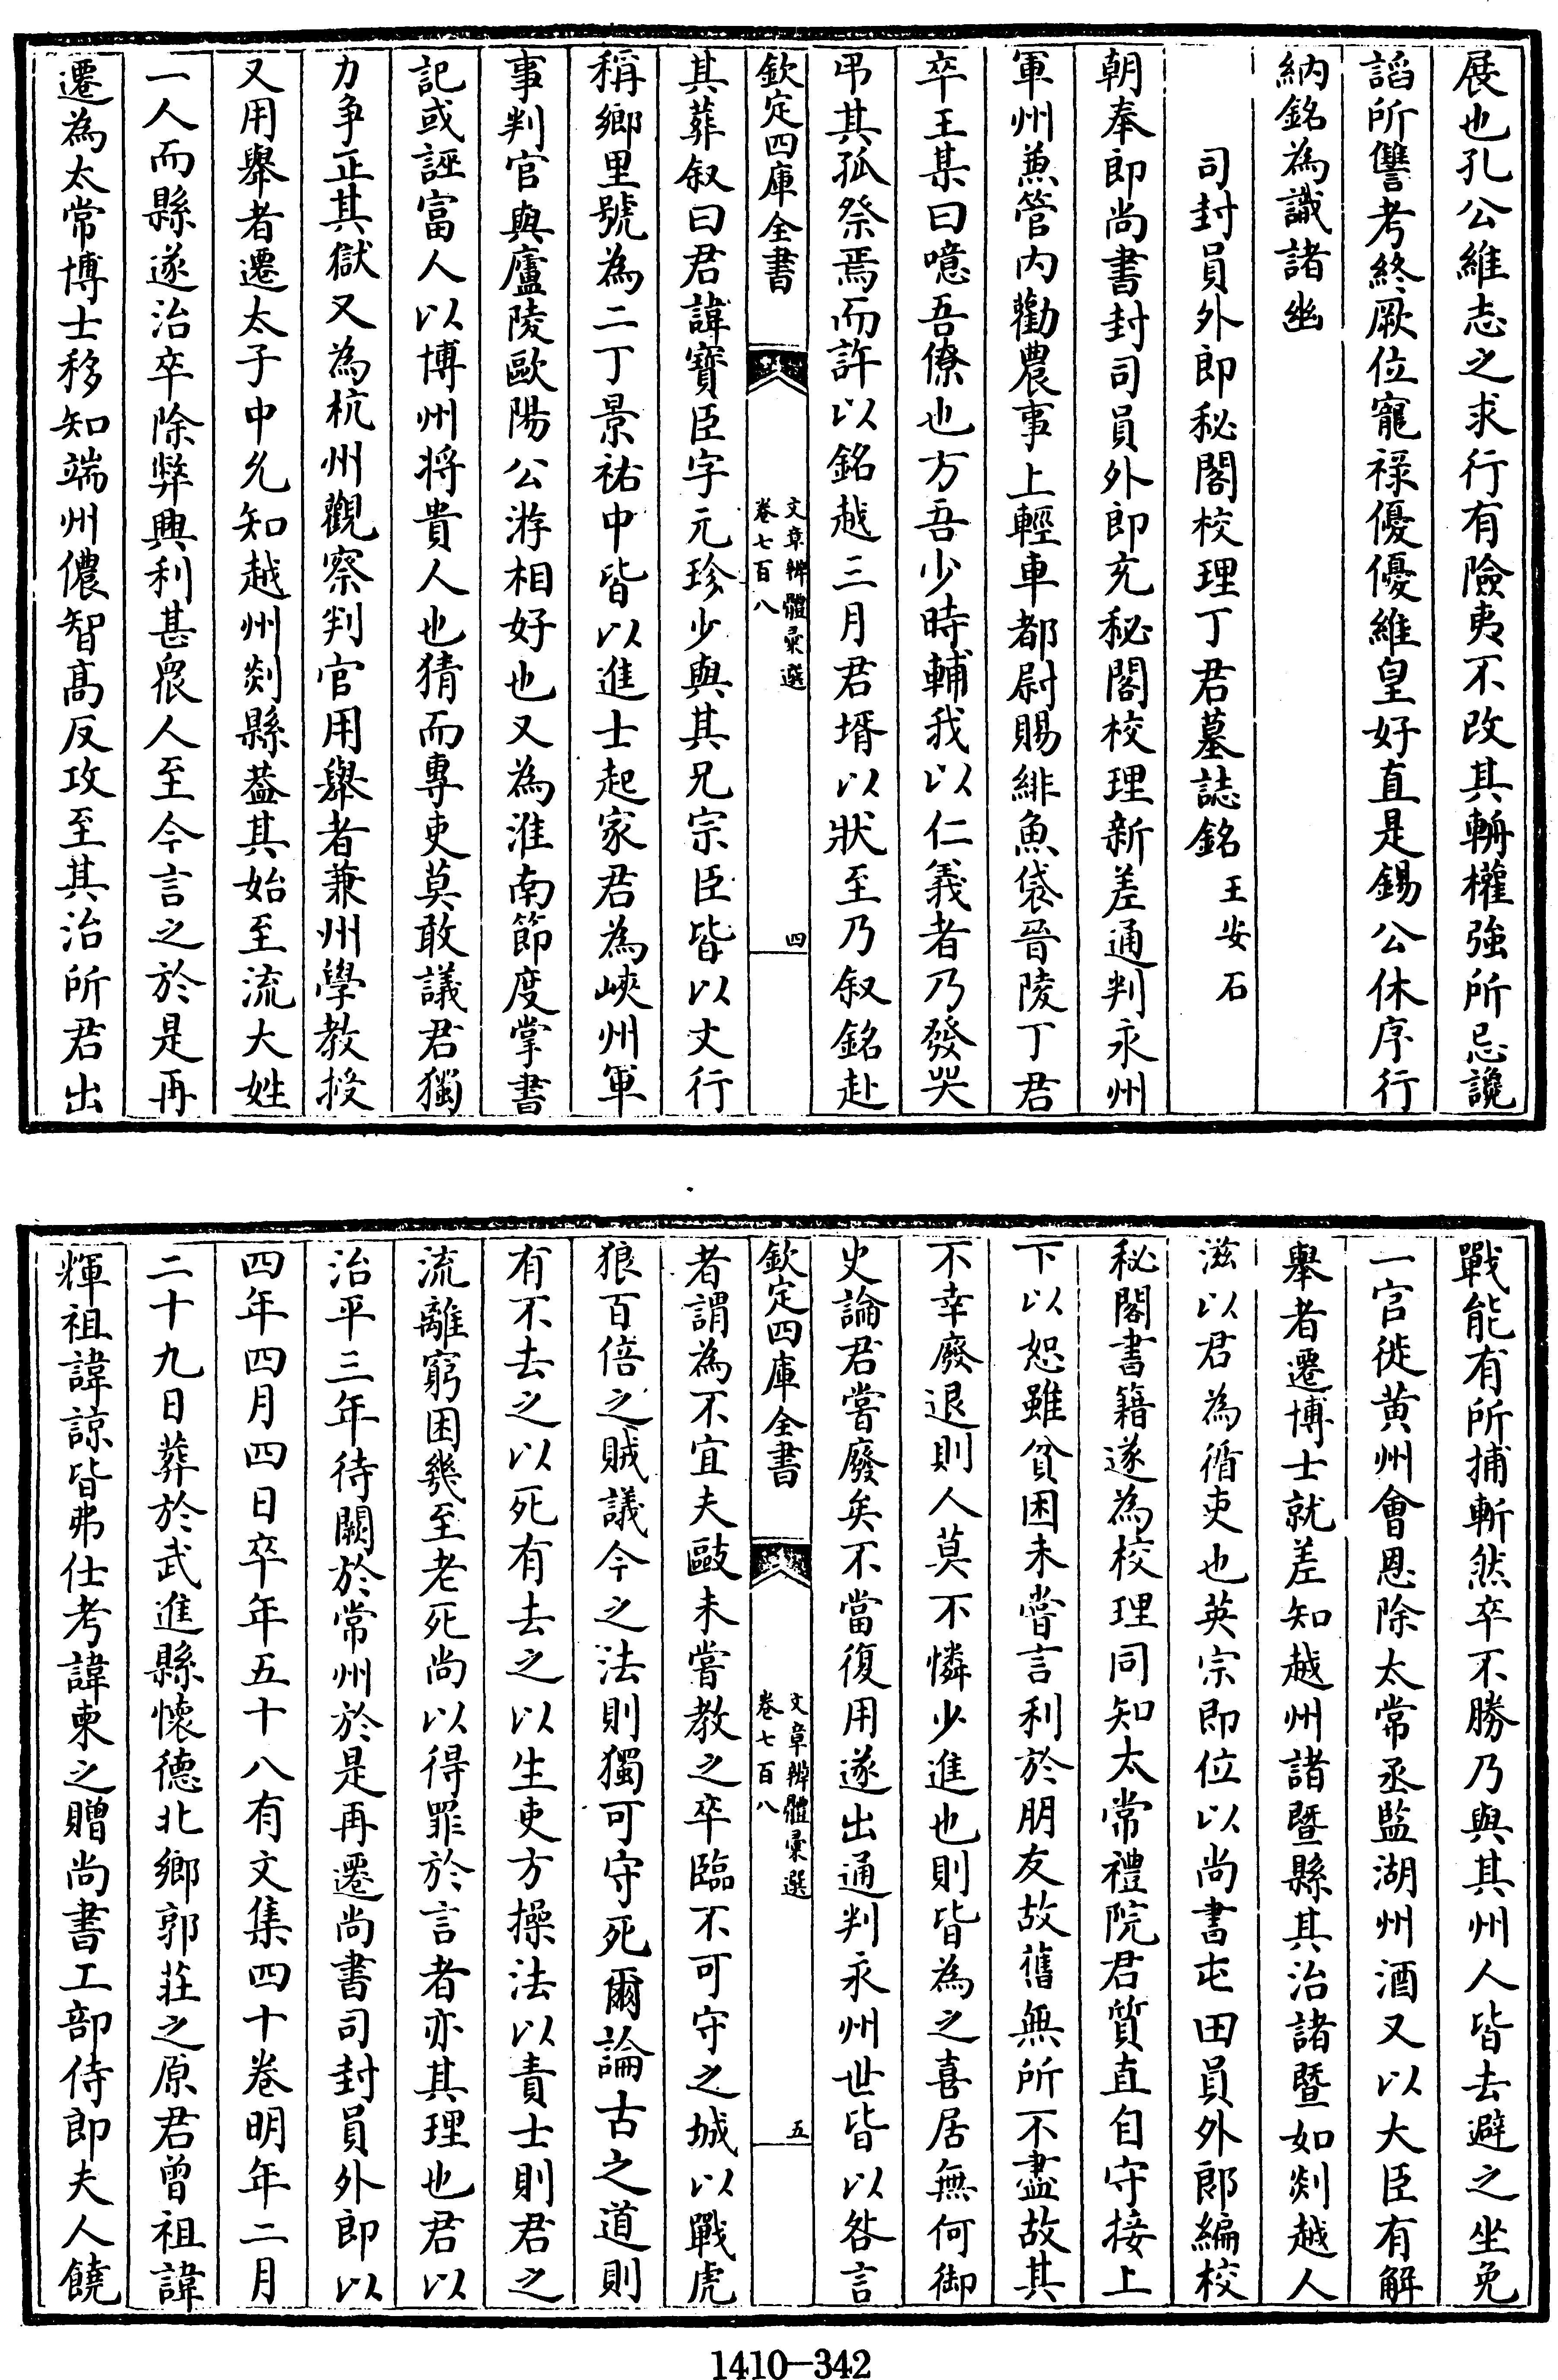 展也孔公維志之求行有險夷不改其輈權強所忌讒
諂所讐考終厥位寵祿優優維皇好直是錫公休序行
納銘為識諸幽
司封員外郎秘閣校理丁君墓誌銘 王安石
朝奉郎尚書封司員外郎充秘閣校理新差通判永州
軍州兼管內勸農事上輕車都尉賜緋魚袋晉陵丁君
卒王某曰噫吾僚也方吾少時輔我以仁義者乃發哭
弔其孤祭焉而許以銘越三月君壻以狀至乃叙銘赴
欽定四庫全書
文章辨體彙選
卷七百八
四
其葬叙曰君諱寶臣字元珍少與其兄宗臣皆以文行
稱鄉里號為二丁景祐中皆以進士起家君為峽州軍
事判官與廬陵歐陽公游相好也又為淮南節度掌書
記或誣富人以博州將貴人也猜而專吏莫敢議君獨
力爭正其獄又為杭州觀察判官用舉者兼州學教授
又用舉者遷太子中允知越州剡縣葢其始至流大姓
一人而縣遂治卒除弊興利甚衆人至今言之於是再
遷為太常博士移知端州儂智高反攻至其治所君出
戰能有所捕斬然卒不勝乃與其州人皆去避之坐免
一官徙黄州會恩除太常丞監湖州酒又以大臣有解
舉者遷博士就差知越州諸暨縣其治諸暨如剡越人
滋以君為循吏也英宗即位以尚書屯田員外郎編校
秘閣書籍遂為校理同知太常禮院君質直自守接上
下以恕雖貧困未嘗言利於朋友故舊無所不盡故其
不幸廢退則人莫不憐少進也則皆為之喜居無何御
史論君嘗廢矣不當復用遂出通判永州世皆以咎言
欽定四庫全書
文章辨體彙選
卷七百八
五
者謂為不宜夫敺未嘗教之卒臨不可守之城以戰虎
狼百倍之賊議今之法則獨可守死爾論古之道則
有不去之以死有去之以生吏方操法以責士則君之
流離窮困幾至老死尚以得罪於言者亦其理也君以
治平三年待闕於常州於是再遷尚書司封員外郎以
四年四月四日卒年五十八有文集四十卷明年二月
二十九日葬於武進縣懷德北鄉郭莊之原君曾祖諱
輝祖諱諒皆弗仕考諱柬之贈尚書工部侍郎夫人饒
1410-342